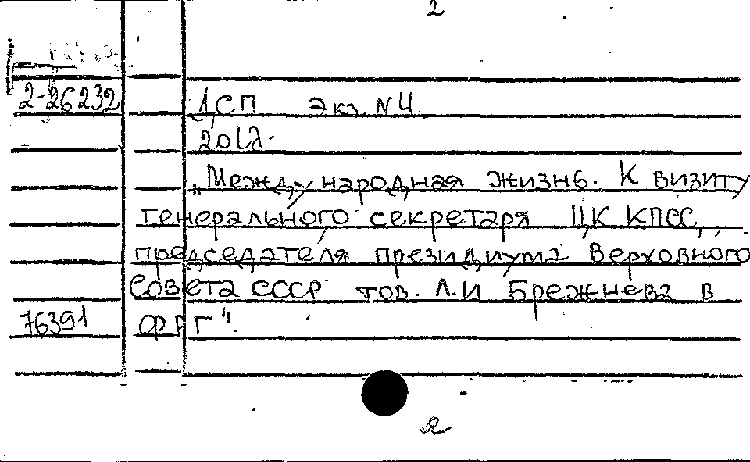 2
2-26232 ДСП экз. N4
201л.
„Международная жизнь. К визиту
генерального секретаря ЦК КПСС,
председателя президиума Верховного
Совета СССР тов. Л.И Брежнева в
76391 ФРГ".